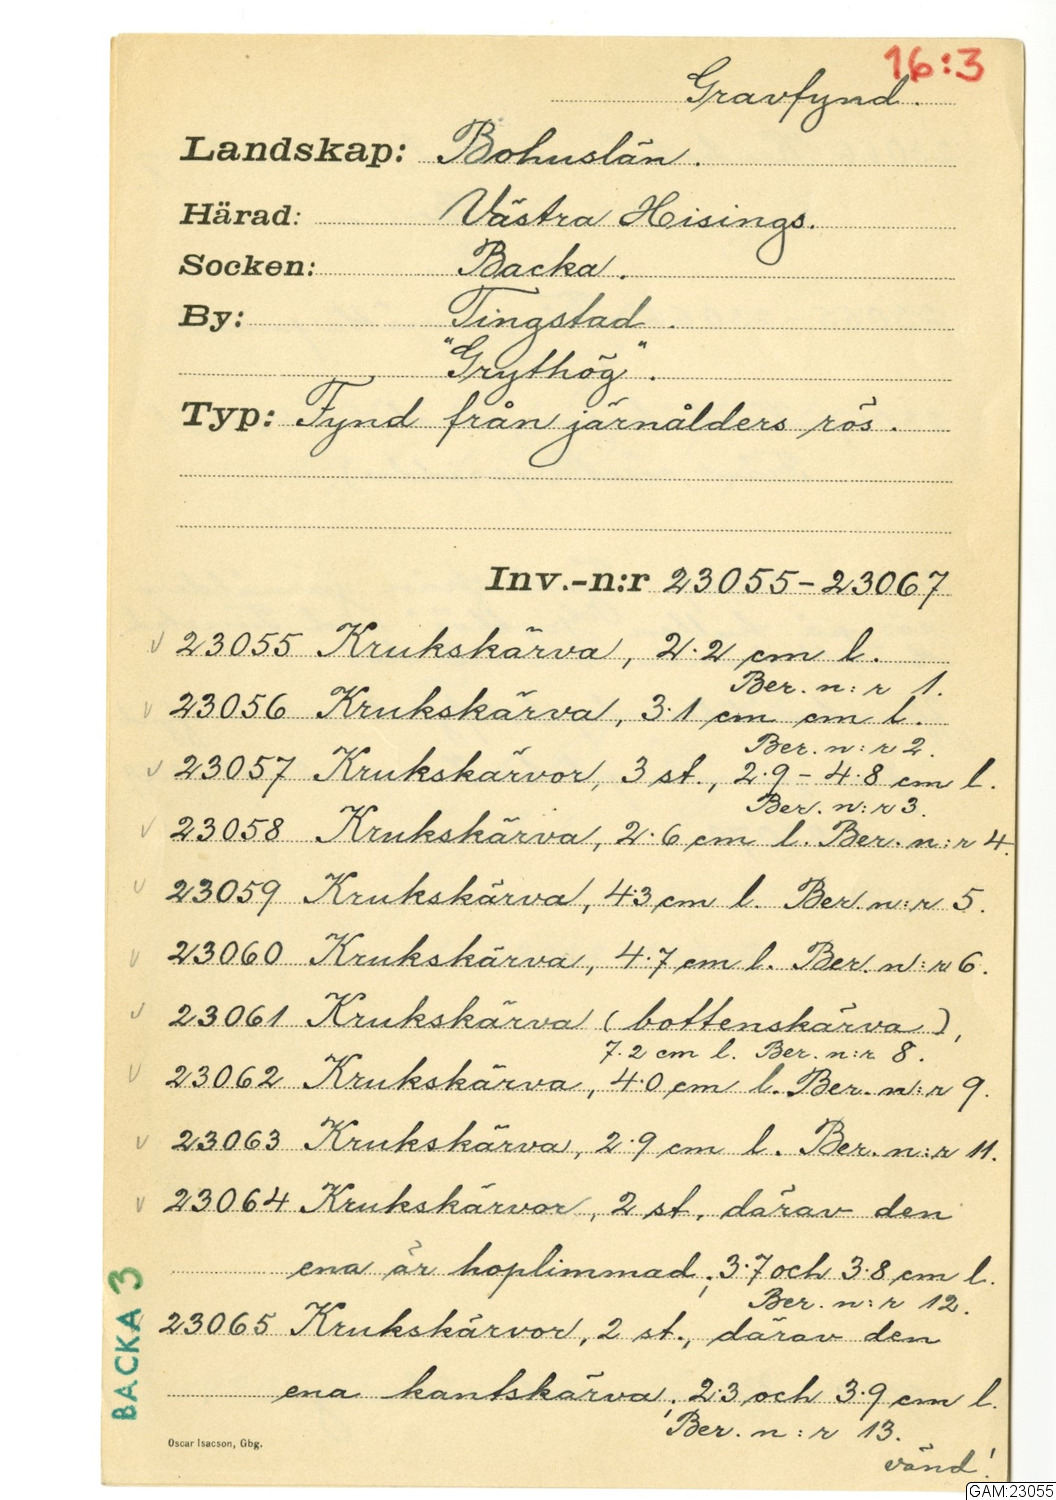 16:3
Gravfynd.
Landskap: Bohuslän.
Härad: Västra Hisings.
Socken: Backa.
By: Tingstad.
"Grythög".
Typ: Fynd från järnålders rös.
Inv.-n:r 23055-23067
v 23055 Krukskärva, 2.2 cm l.
Ber. n:r 1.
v 23056 Krukskärva, 3.1 cm cm l.
Ber. n:r 2.
v 23057 Krukskärvor, 3 st., 2.9 - 4.8 cm l.
Ber. n:r 3.
v 23058 Krukskärva, 2.6 cm l. Ber. n:r 4.
v 23059 Krukskärva, 4.3 cm l. Ber. n:r 5.
v 23060 Krukskärva, 4.7 cm l. Ber. n:r 6.
v 23061 Krukskärva (bottenskärva),
7.2 cm l. Ber. n:r 8.
v 23062 Krukskärva, 4.0 cm l. Ber. n:r 9.
v 23063 Krukskärva, 2.9 cm l. Ber. n:r 11.
v 23064 Krukskärvor, 2 st., därav den
ena är hoplimmad; 3.7 och 3.8 cm l.
Ber. n:r 12.
23065 Krukskärvor, 2 st., därav den
ena kantskärva; 2.3 och 3.9 cm l.
Ber. n:r 13.
vänd!
BACKA 3
Oscar Isacson, Gbg.
GAM:23055